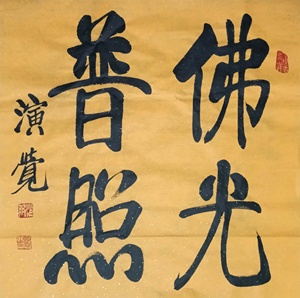 佛光
普照
演覺